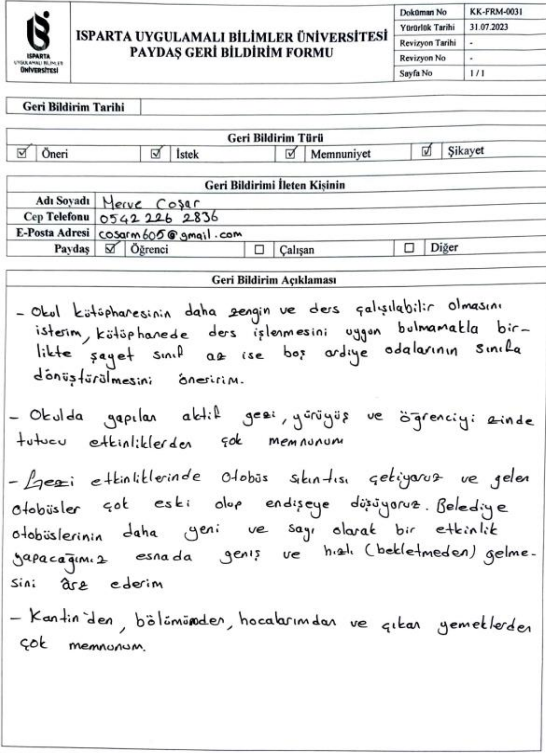 ISPARTA
UYGULAMALI BİLİMLER
ÜNİVERSİTESİ
ISPARTA UYGULAMALI BİLİMLER ÜNİVERSİTESİ
PAYDAŞ GERİ BİLDİRİM FORMU
Doküman No KK-FRM-0031
Yürürlük Tarihi 31.07.2023
Revizyon Tarihi -
Revizyon No -
Sayfa No 1 / 1
Geri Bildirim Tarihi
Geri Bildirim Türü
☑ Öneri ☑ İstek ☑ Memnuniyet ☑ Şikayet
Geri Bildirimi İleten Kişinin
Adı Soyadı Merve Coşar
Cep Telefonu 0542 226 2836
E-Posta Adresi cosarm605@gmail.com
Paydaş ☑ Öğrenci ☐ Çalışan ☐ Diğer
Geri Bildirim Açıklaması
- Okul kütüphanesinin daha zengin ve ders çalışılabilir olmasını
isterim, kütüphanede ders işlenmesini uygun bulmamakla bir-
likte şayet sınıf az ise boş ardiye odalarının sınıfa
dönüştürülmesini öneririm.
- Okulda yapılan aktif gezi, yürüyüş ve öğrenciyi zinde
tutucu etkinliklerden çok memnunum
- Gezi etkinliklerinde Otobüs sıkıntısı çekiyoruz ve gelen
otobüsler çok eski olup endişeye düşüyoruz. Belediye
otobüslerinin daha yeni ve sayı olarak bir etkinlik
yapacağımız esnada geniş ve hızlı (bekletmeden) gelme-
sini arz ederim
- Kantin'den, bölümümden, hocalarımdan ve çıkan yemeklerden
çok memnunum.